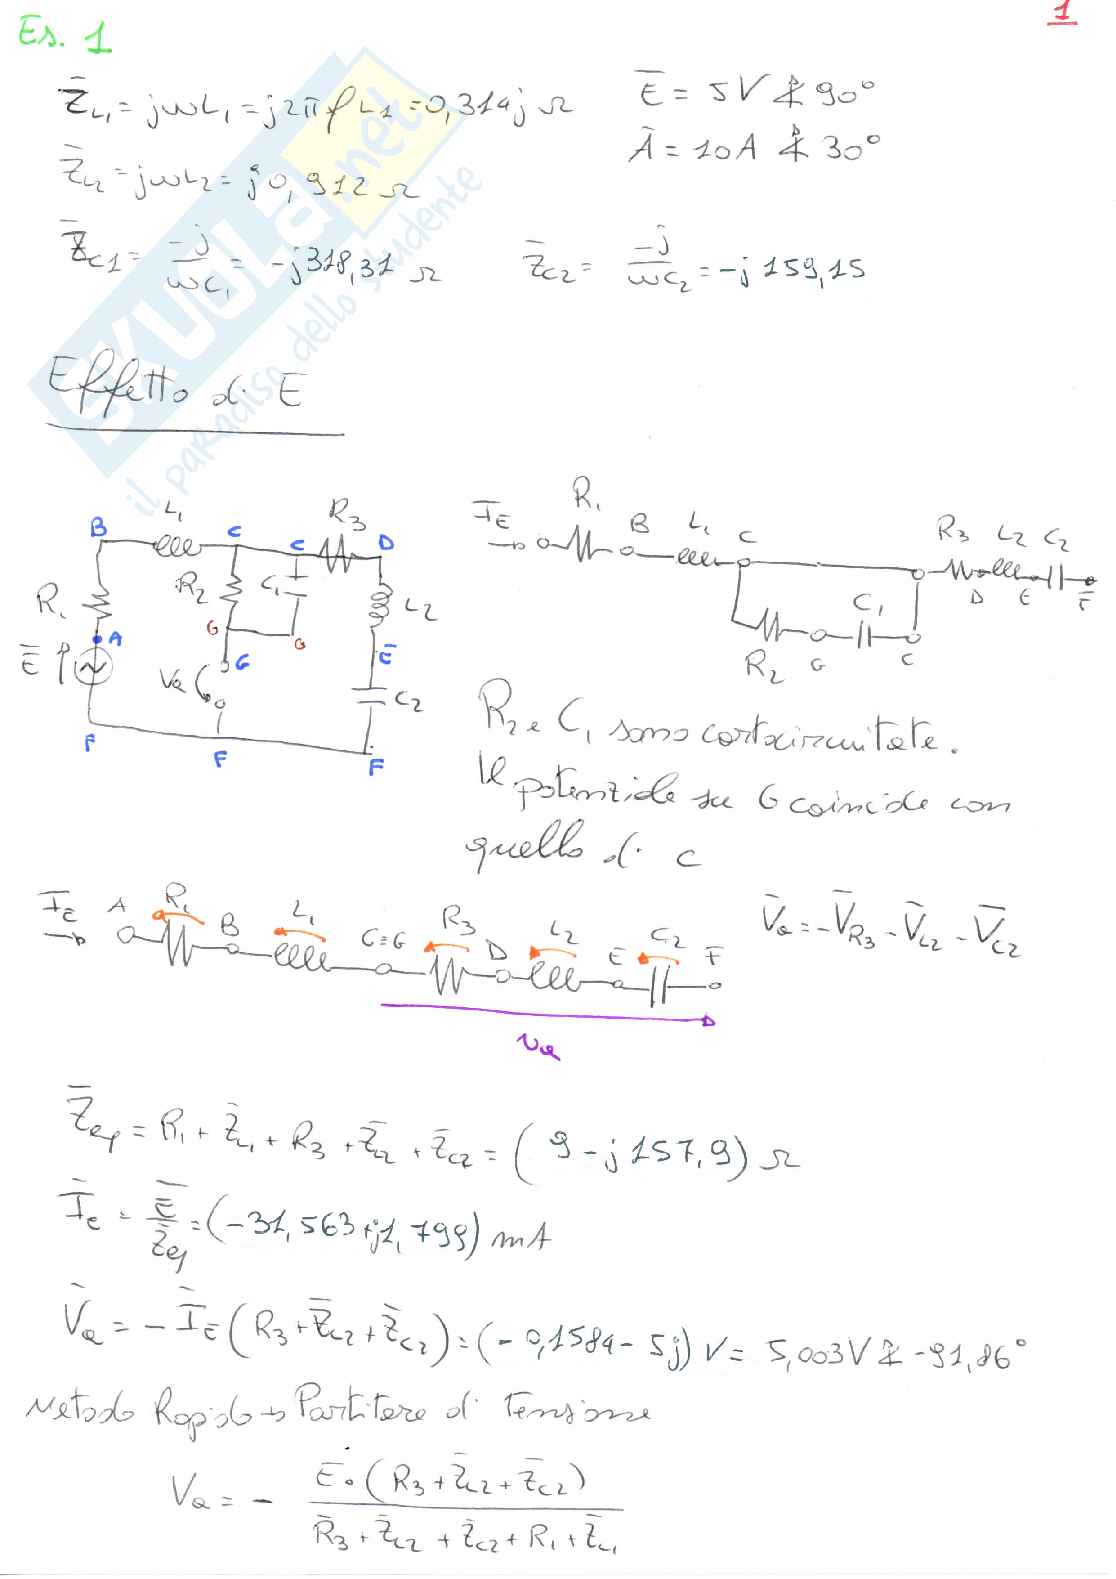 Es. 1
1
Z̄L1 = jωL1 = j2πfL1 = 0,314j Ω
Ē = 5V ∡ 90°
Ā = 10A ∡ 30°
Z̄L2 = jωL2 = j0,912 Ω
Z̄C1 = -j/ωC1 = -j318,31 Ω
Z̄C2 = -j/ωC2 = -j159,15
SKUOLA.net
il paradiso dello studente
Effetto di E
B L1 C C R3 D
R1 R2 C1 L2
A G G Ē
Ē VQ G C2
F F F
ĪE R1 B L1 C R3 L2 C2
D E F̄
C1
R2 G C
R2 e C1 sono cortocircuitate.
Il potenziale su G coincide con
quello di C
ĪE A R1 B L1 C≡G R3 D L2 Ē C2 F̄
VQ
V̄Q = -V̄R3 - V̄L2 - V̄C2
Z̄eq = R1 + Z̄L1 + R3 + Z̄L2 + Z̄C2 = (9 - j157,9) Ω
ĪE = Ē/Z̄eq = (-31,563 + j1,799) mA
V̄Q = -ĪE (R3 + Z̄L2 + Z̄C2) = (-0,1584 - 5j) V = 5,003V ∡ -91,86°
Metodo Rapido → Partitore di Tensione
VQ = - Ē·(R3 + Z̄L2 + Z̄C2) / R̄3 + Z̄L2 + Z̄C2 + R1 + Z̄L1